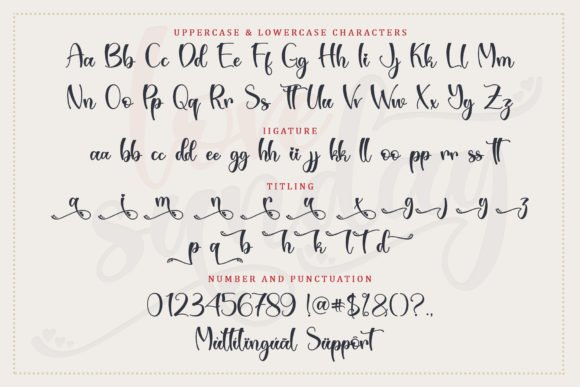 UPPERCASE & LOWERCASE CHARACTERS
Aa Bb Cc Dd Ee Ff Gg Hh Ii Jj Kk Ll Mm
Nn Oo Pp Qq Rr Ss Tt Uu Vv Ww Xx Yy Zz
lIGATURE
aa bb cc dd ee gg hh ii jj kk ll oo pp rr ss tt
TITLING
a i m n r a x g j y z
p q b h k l t d
NUMBER AND PUNCTUATION
0123456789 !@#$%&()?.,
Mùltilingùàl Sùppôrt
love
sunday